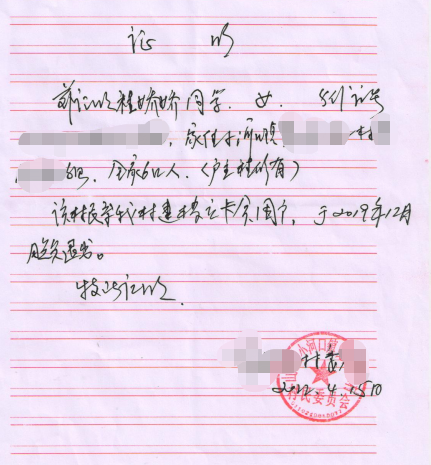 证 明
兹证明程娇娇同学,女,身份证号
,家住小河口镇 村
组,全家6口人。(户主程 有)
该 我村建档立卡贫困户,于2019年12月
脱贫退出。
特此证明
小河口镇
村委
村民委员会